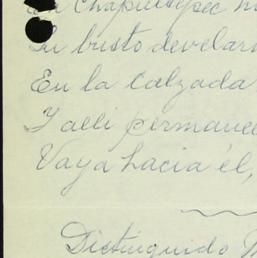 En Chapultepec
Su busto develar
En la calzada
Y alli permane
Vaya hacia él,
Distinguido